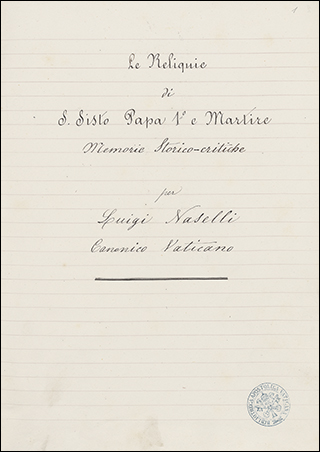 1
Le Reliquie
di
S. Sisto Papa 1º e Martire
Memorie Storico-critiche
per
Luigi Naselli
Canonico Vaticano